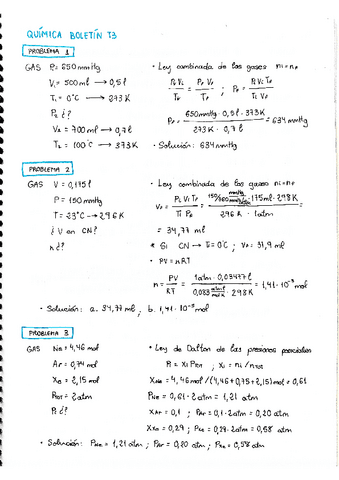 QUÍMICA BOLETÍN T3
PROBLEMA 1
GAS P1 = 650 mmHg
V1 = 500 ml → 0,5 l
T1 = 0°C → 273 K
P2 ¿?
V2 = 700 ml → 0,7 l
T2 = 100°C → 373 K
• Ley combinada de los gases ni = nF
Pi Vi / Ti = PF VF / TF ; PF = Pi Vi TF / Ti VF
PF = 650 mmHg · 0,5 l · 373 K / 273 K · 0,7 l = 634 mmHg
• Solución: 634 mmHg
PROBLEMA 2
GAS V = 0,175 l
P = 150 mmHg
T = 23°C → 296 K
¿V en CN?
n ¿?
• Ley combinada de los gases ni = nF
VF = Pi Vi TF / Ti PF = 150/760 · 175 ml · 298 K / 296 K · 1 atm
= 34,77 ml
* Si CN → T = 0°C ; VF = 31,9 ml
• PV = nRT
n = PV / RT = 1 atm · 0,03477 l / 0,083 · 298 K = 1,41 · 10⁻³ mol
• Solución: a. 34,77 ml ; b. 1,41 · 10⁻³ mol
PROBLEMA 3
GAS Ne = 4,46 mol
Ar = 0,74 mol
Xe = 2,15 mol
PTOT = 2 atm
Pi ¿?
• Ley de Dalton de las presiones parciales
Pi = Xi PTOT ; Xi = ni / nTOT
XNe = 4,46 mol / (4,46 + 0,75 + 2,15) mol = 0,61
PNe = 0,61 · 2 atm = 1,21 atm
XAr = 0,1 ; PAr = 0,1 · 2 atm = 0,20 atm
XXe = 0,29 ; PXe = 0,29 · 2 atm = 0,58 atm
• Solución: PNe = 1,21 atm ; PAr = 0,20 atm ; PXe = 0,58 atm